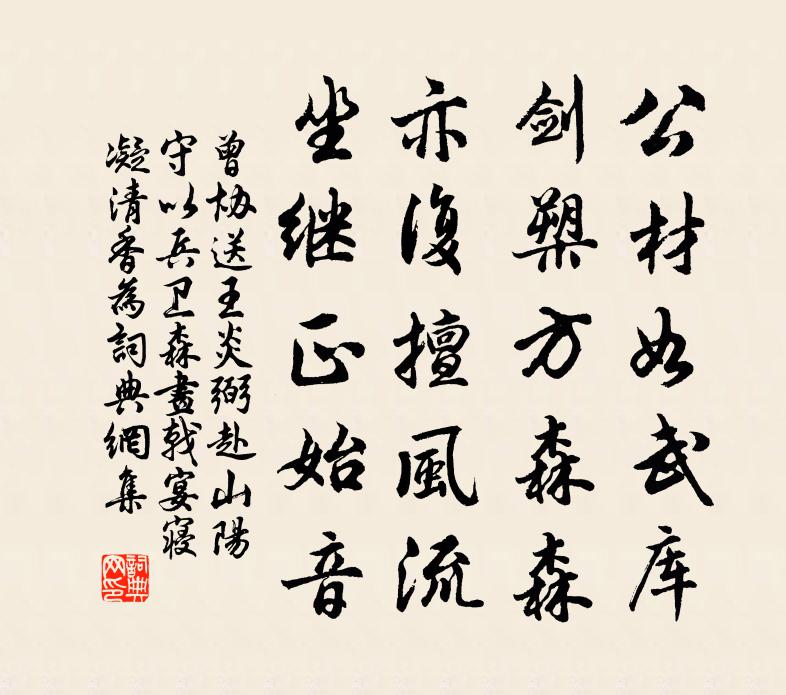 公材如武库
剑槊方森森
亦復擅風流
坐继正始音
曾协送王炎弼赴山陽
守以兵卫森畫戟宴寝
凝清香為詞典網集
詞典网印